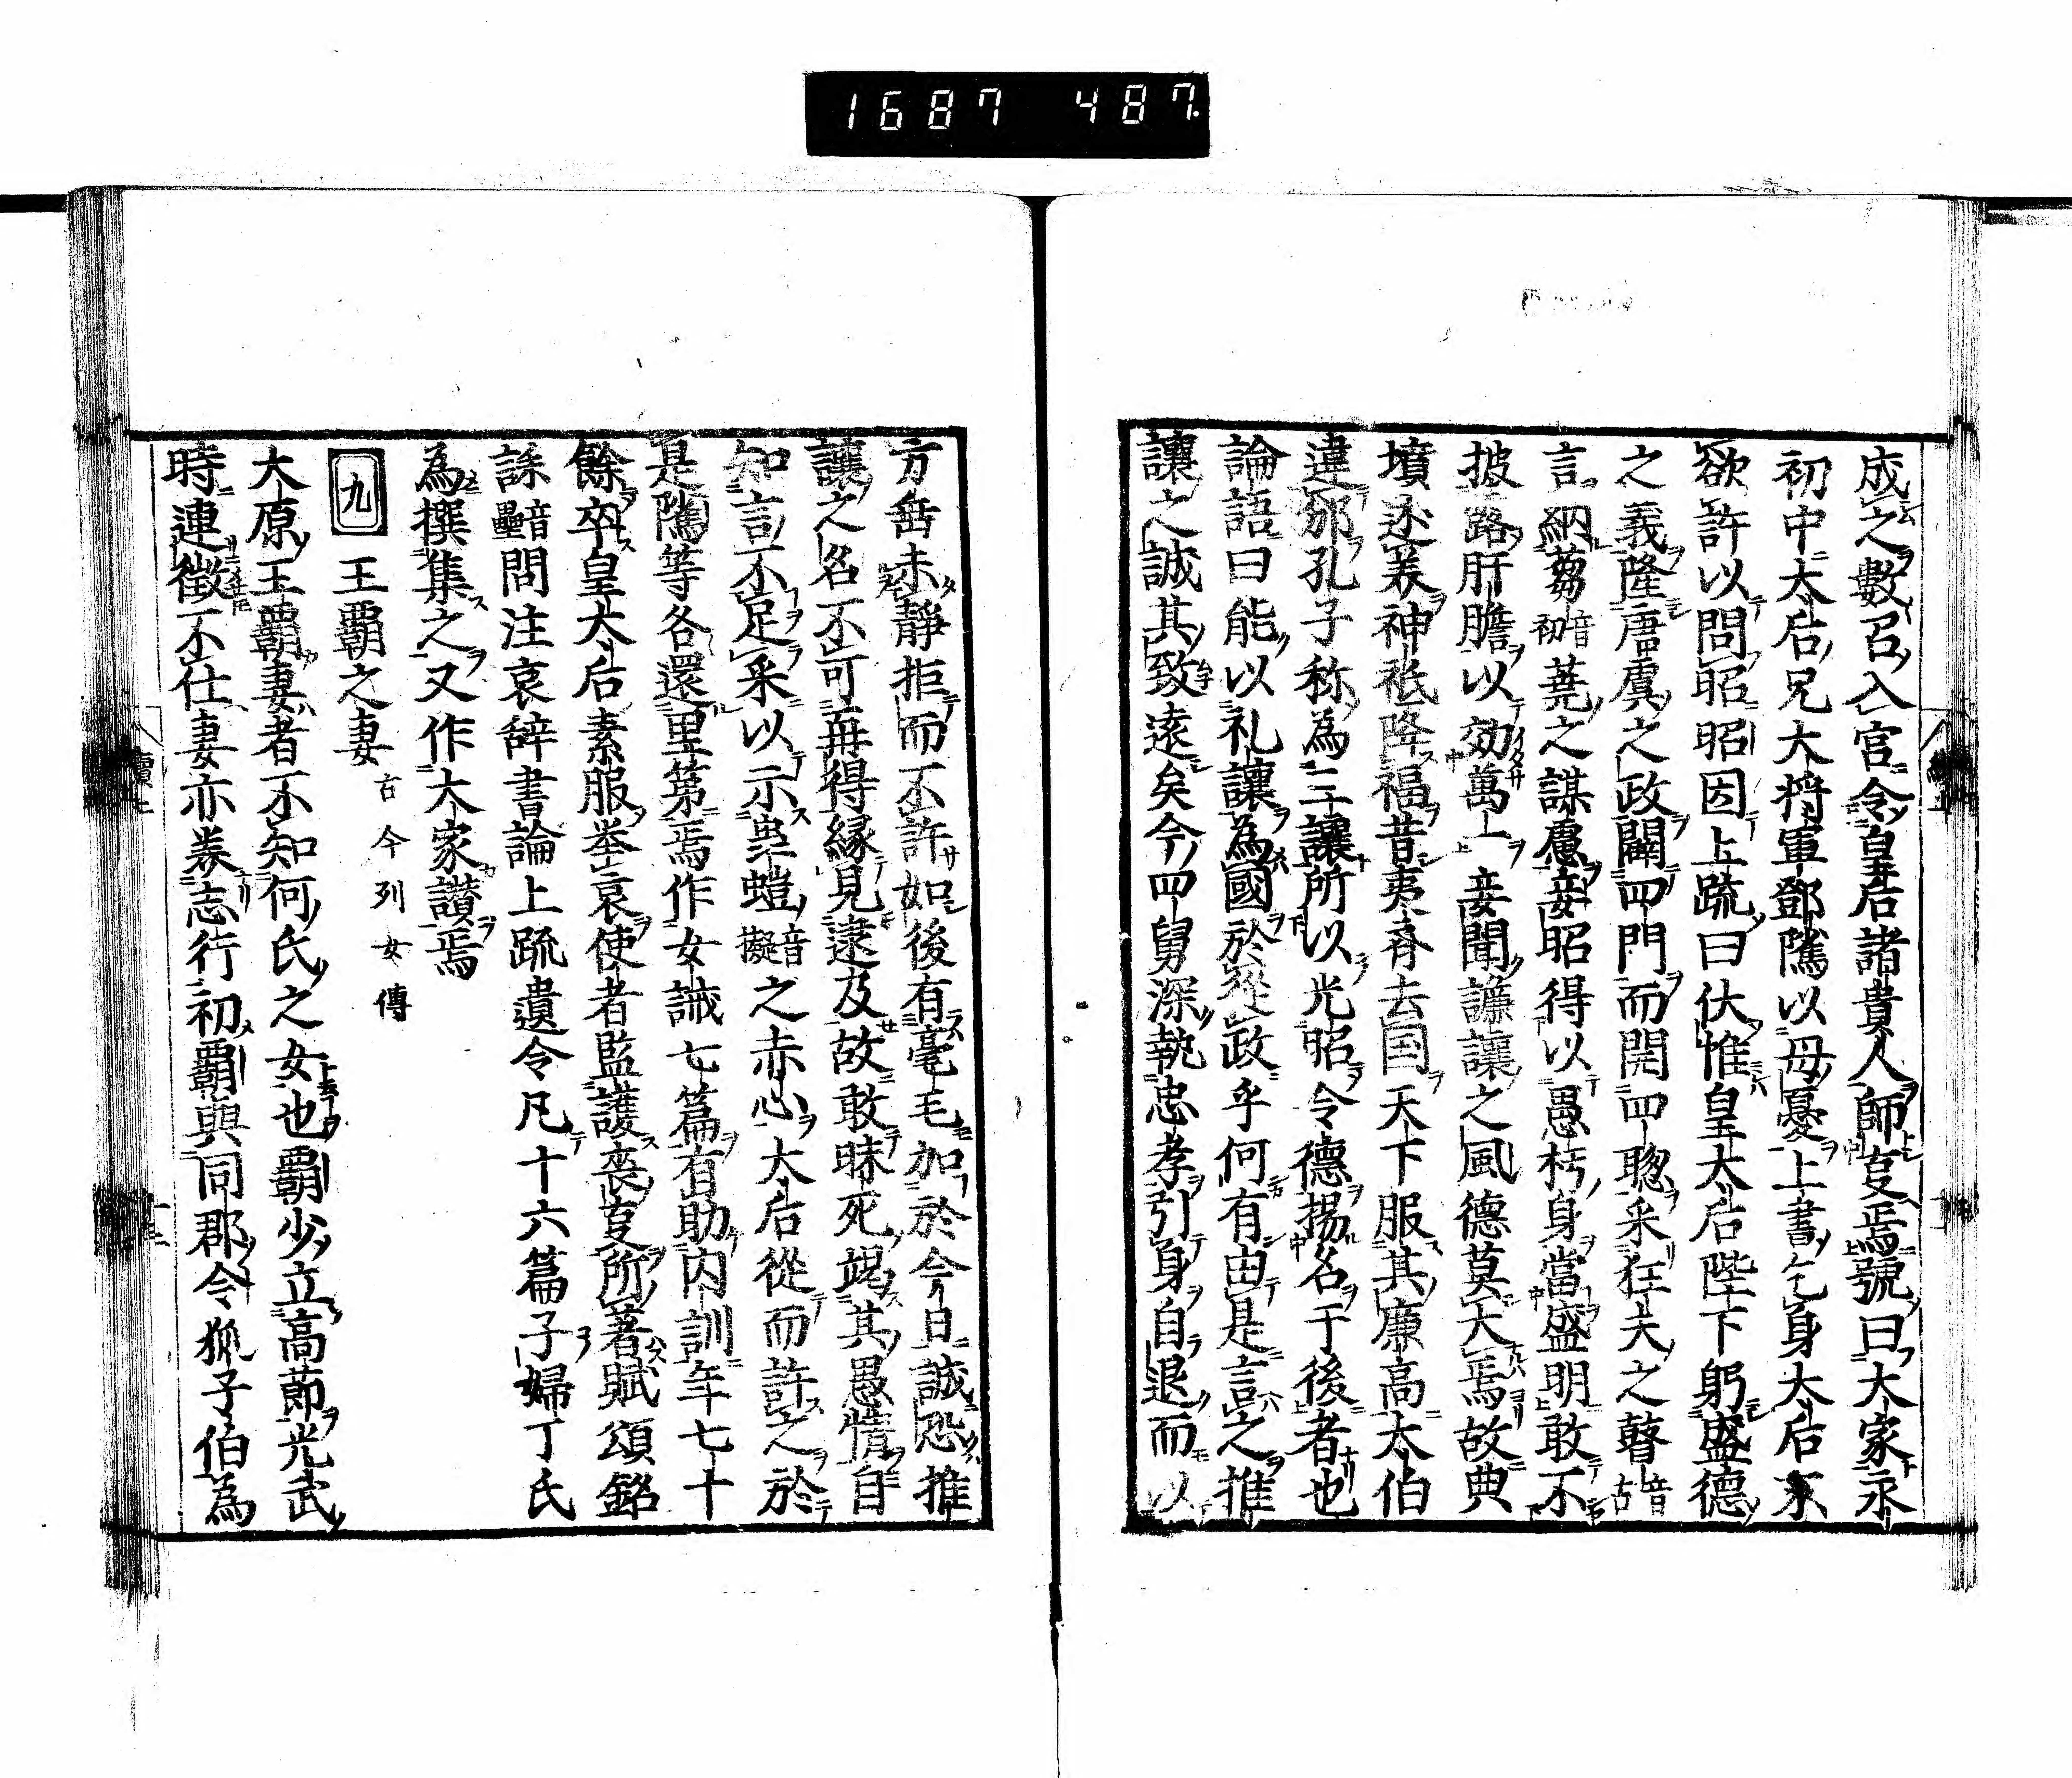 1687 487
成之數召入宮令皇后諸貴人師㕝焉號曰大家永
初中太后兄大将軍鄧隲以母憂上書乞身太后不
欲許以問昭昭因上疏曰伏惟皇太后陛下躬盛德
之義隆唐虞之政闢四門而開四聦采狂夫之瞽音古
言納蒭音初蕘之謀慮妾昭得以愚朽身當盛明敢不
披露肝膽以効萬一妾聞謙讓之風德莫大焉故典
墳述羙神祇降福昔夷斉去国天下服其廉高太伯
違邠孔子称為三讓所以光昭令德揚名于後者也
論語曰能以礼讓為國於從政乎何有由是言之推
讓之誠其致遠矣今四舅深執忠孝引身自退而以
方垂未靜拒而不許如後有毫毛加於今日誠恐推
讓之名不可再得縁見逮及故敢昧死竭其愚情自
知言不足采以示虫螘音擬之赤心太后從而許之於
是隲等各還里第焉作女誡七篇有助内訓年七十
餘卒皇太后素服举哀使者監護喪㕝所著賦頌銘
誄音壘問注哀辞書論上疏遺令凡十六篇子婦丁氏
為撰集之又作大家讃焉
九 王覇之妻 古今列女傳
大原王覇妻者不知何氏之女也覇少立高節光武
時連徵不仕妻亦美志行初覇與同郡令狐子伯為